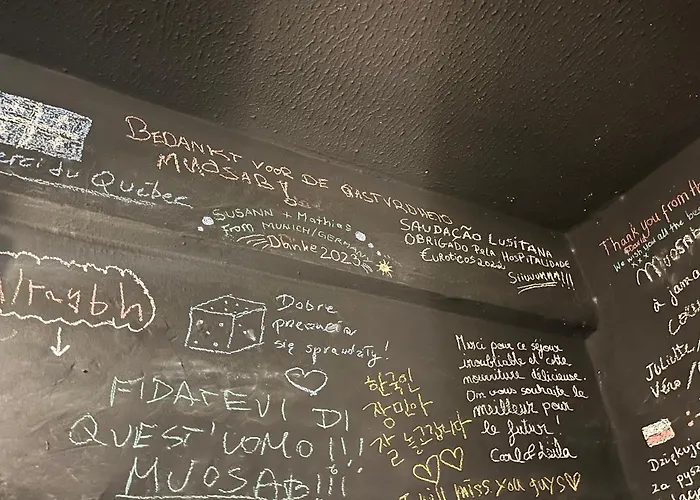 erci du Québec
BEDANKT VOOR DE GASTVRIJHEID
MUOSAB!
SUSANN + Mathias
from MUNICH/GERMANY
2023
SAUDAÇÃO LUSITANA
OBRIGADO PELA HOSPITALIDADE
EUROTICOS 2022
SIIUUMMM!!!
Thank you from th
We wish you all the b
Muosab
à jama
Juliette,
Véro /
Dobre
się sprawdziły!
FIDATEVI DI
QUEST'UOMO!!!
MUOSAB!!!
한국인
장민아
잘 놀고갑니다
I will miss you guys
Merci pour ce séjour
inoubliable et cette
nourriture délicieuse.
On vous souhaite le
meilleur pour
le futur!
Carl & Leïla
Dziękuje
za pysz